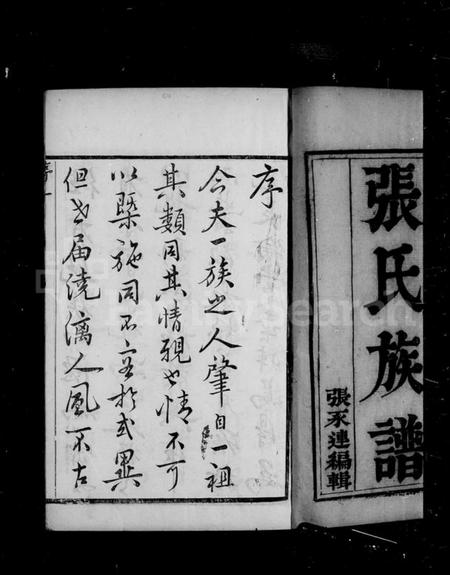 張氏族譜
張承連編輯
序
今夫一族之人肇自一祖
其類同其情親也情不可
以槩施同不容於或異
但世届澆漓人風不古
FamilySearch